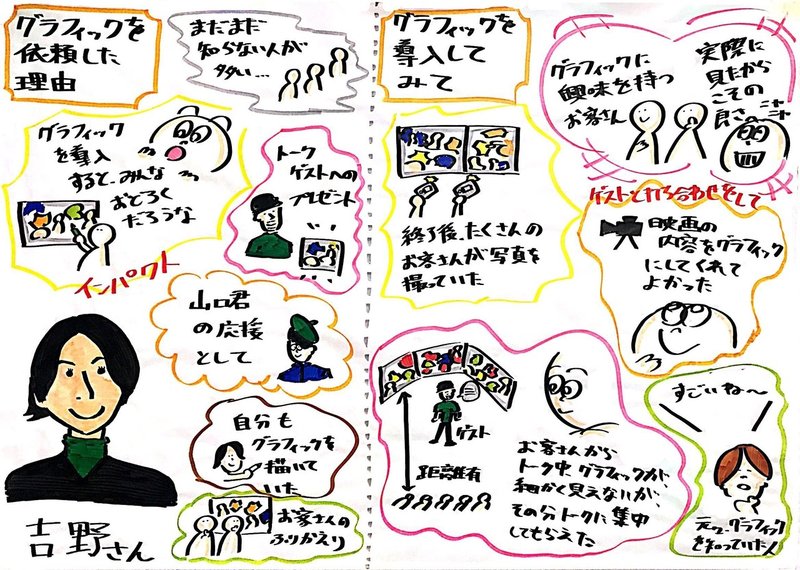 グラフィックを
依頼した
理由
まだまだ
知らない人が
多い…
グラフィック
を導入
すると、みんな
おどろく
だろうな
インパクト
トーク
ゲストへの
プレゼント
山口君
の応援
として
自分も
グラフィックを
描いて
いた
お客さんの
ふりかえり
吉野さん
グラフィックを
導入して
みて
グラフィックに
興味を持つ
お客さん
実際に
見たから
こその
良さ
ニヤ
ニヤ
終了後、たくさんの
お客さんが写真を
撮っていた
ゲストと打ち合わせをして
映画の
内容をグラフィック
にしてくれて
よかった
ゲスト
距離有
お客さんから
トーク中、グラフィックが、
細かく見えないが、
その分トークに集中
してもらえた
すごいな〜
元々、グラフィック
を知っていた人